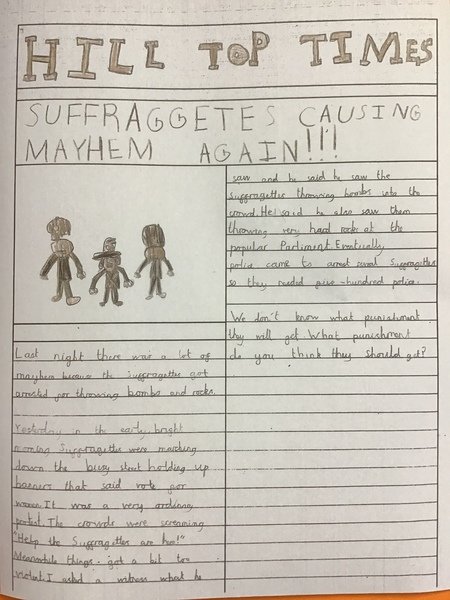 HILL TOP TIMES
SUFFRAGGETES CAUSING
MAYHEM AGAIN!!!
Last night there was a lot of
mayhem because the suffragettes got
arrested for throwing bombs and rocks.
Yesterday in the early bright
morning Suffragettes were marching
down the busy street holding up
banners that said vote for
women. It was a very ordinary
protest. The crowds were screaming
"Help the Suffragettes are here!"
Meanwhile things got a bit too
violent. I asked a witness what he
saw and he said he saw the
suffragettes throwing bombs into the
crowd. He said he also saw them
throwing very hard rocks at the
popular Parliment. Eventically
police came to arrest several Suffragettes
so they needed five-hundred police.
We don't know what punishment
they will get. What punishment
do you think they should get?